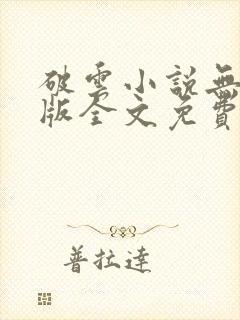 破雲小說無
版全文免費
普拉達